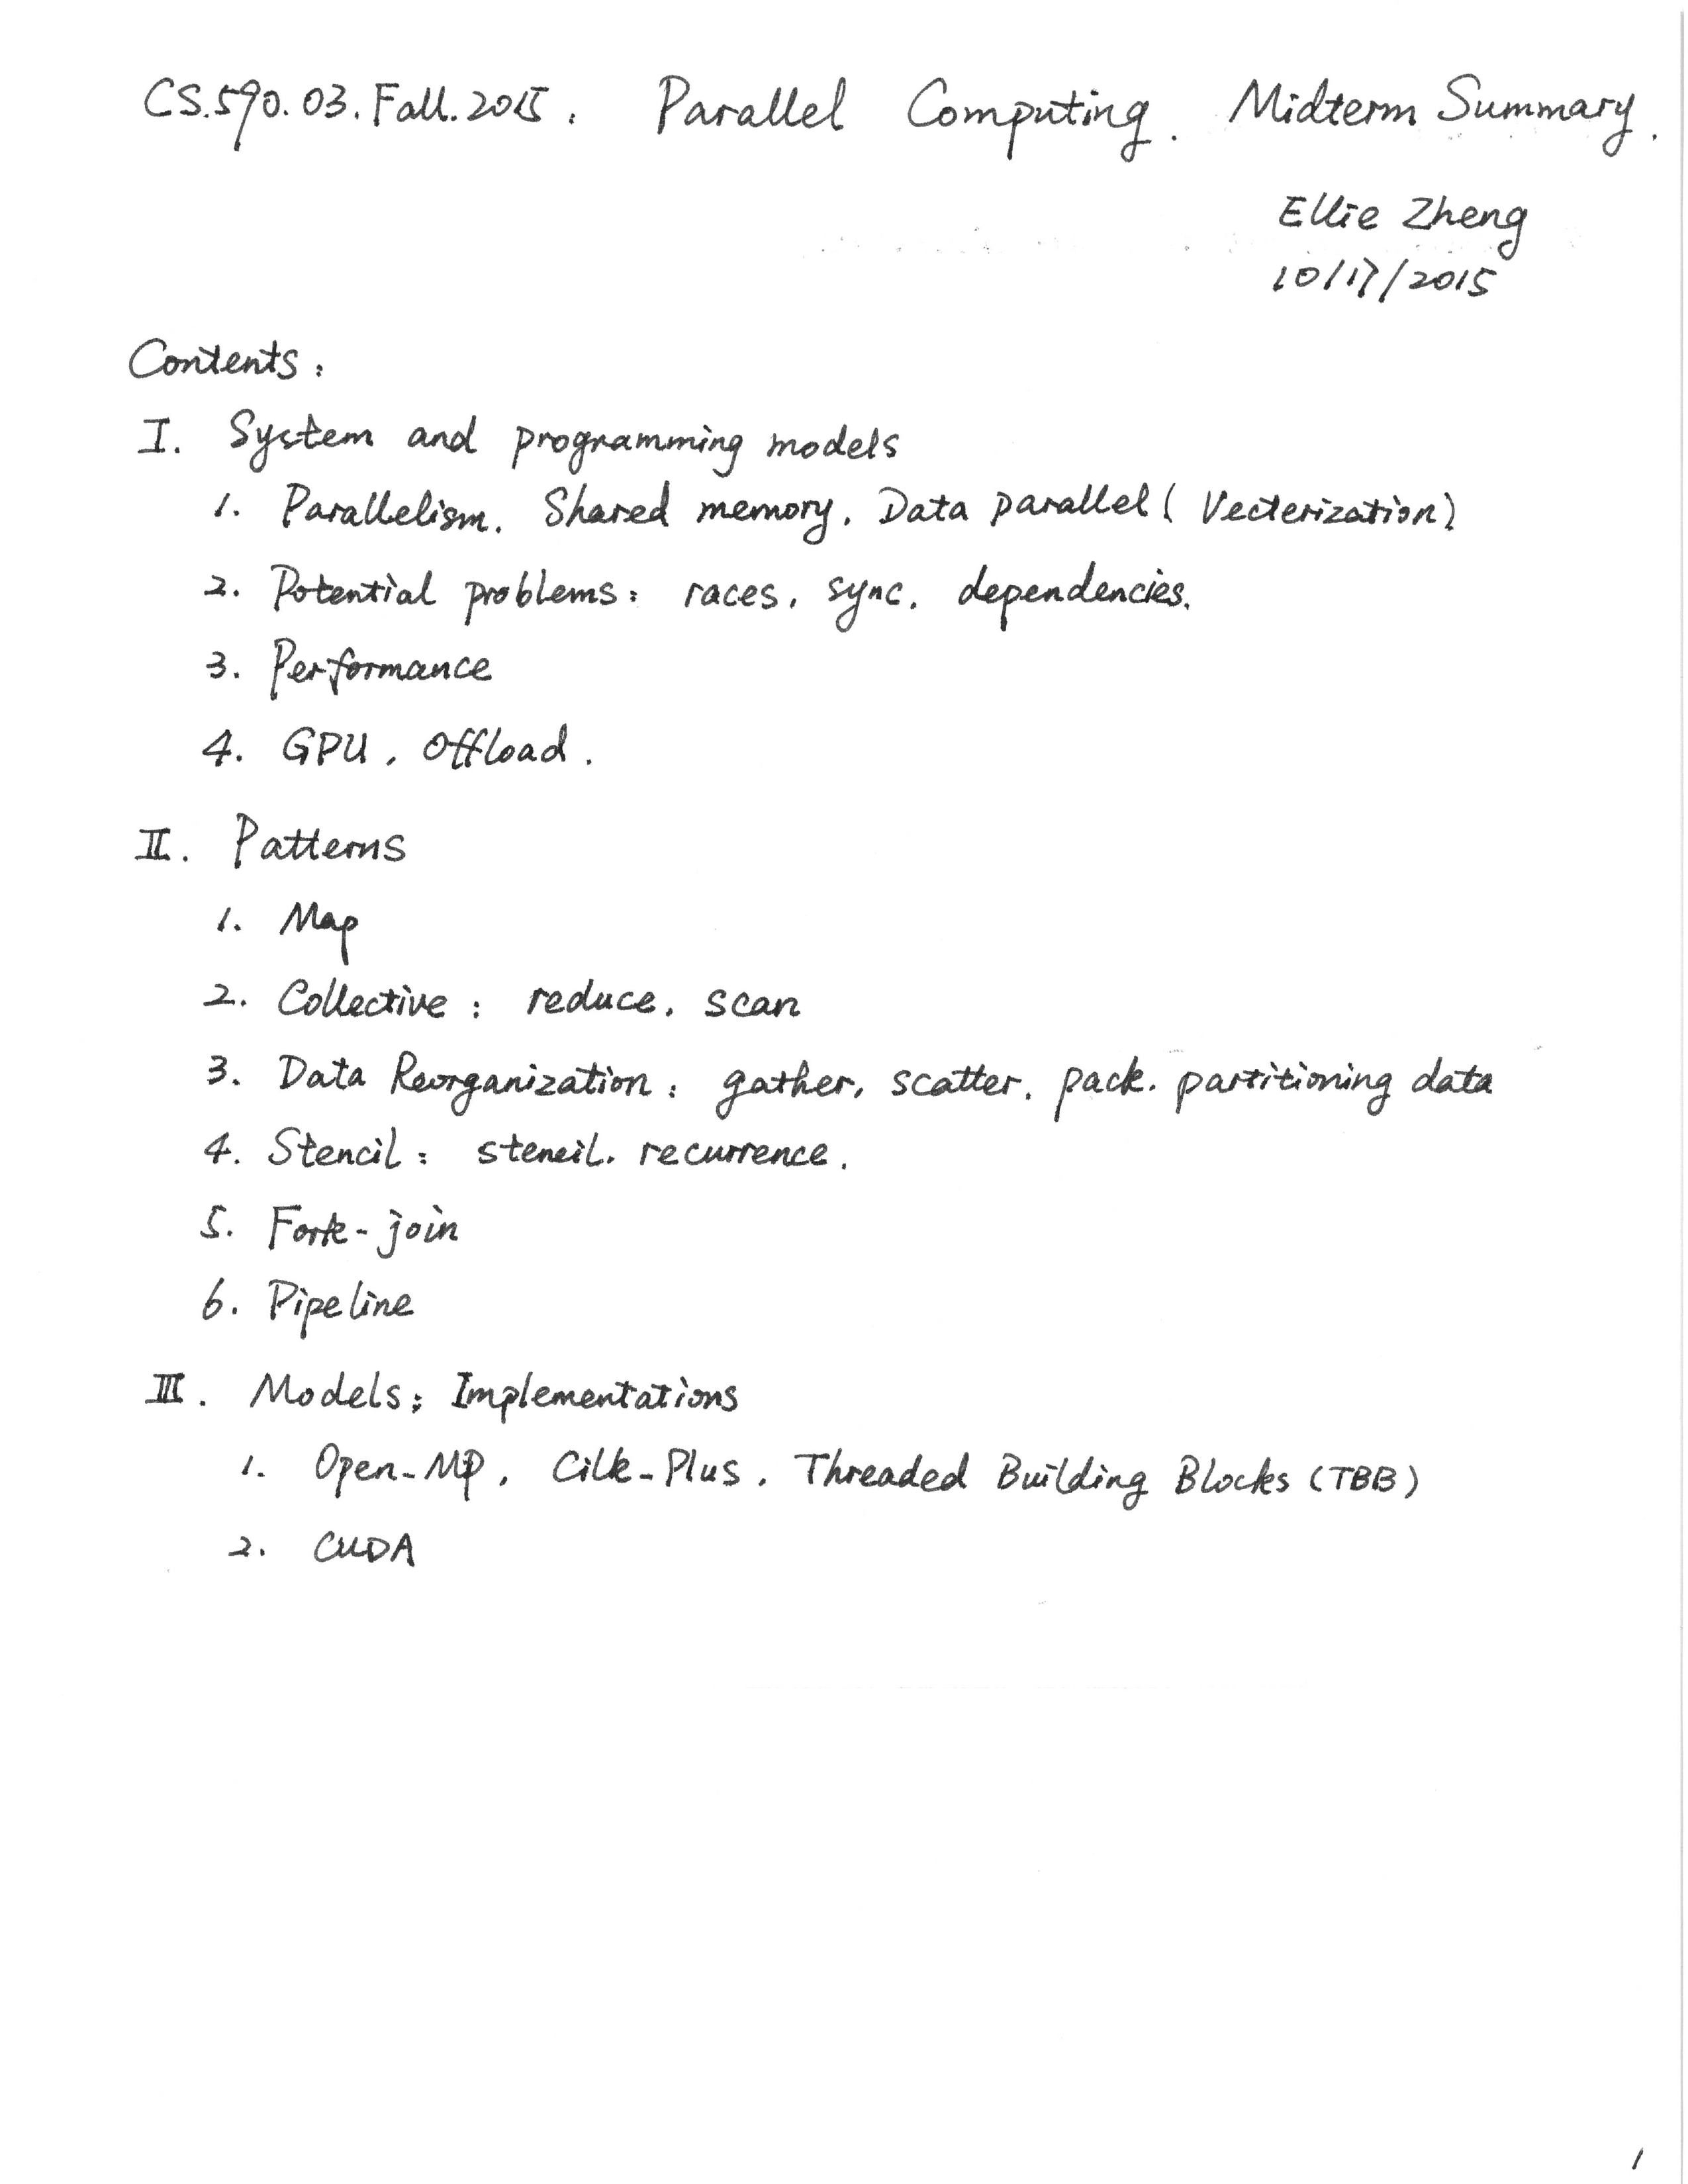 CS.590.03. Fall. 2015. Parallel Computing. Midterm Summary.
Ellie Zheng
10/17/2015
Contents:
I. System and programming models
1. Parallelism. Shared memory. Data parallel (Vecterization)
2. Potential problems: races, sync. dependencies.
3. Performance
4. GPU, Offload.
II. Patterns
1. Map
2. Collective: reduce, scan
3. Data Reorganization: gather, scatter, pack. partitioning data
4. Stencil: stencil. recurrence.
5. Fork-join
6. Pipeline
III. Models; Implementations
1. Open-MP, Cilk-Plus. Threaded Building Blocks (TBB)
2. CUDA
1